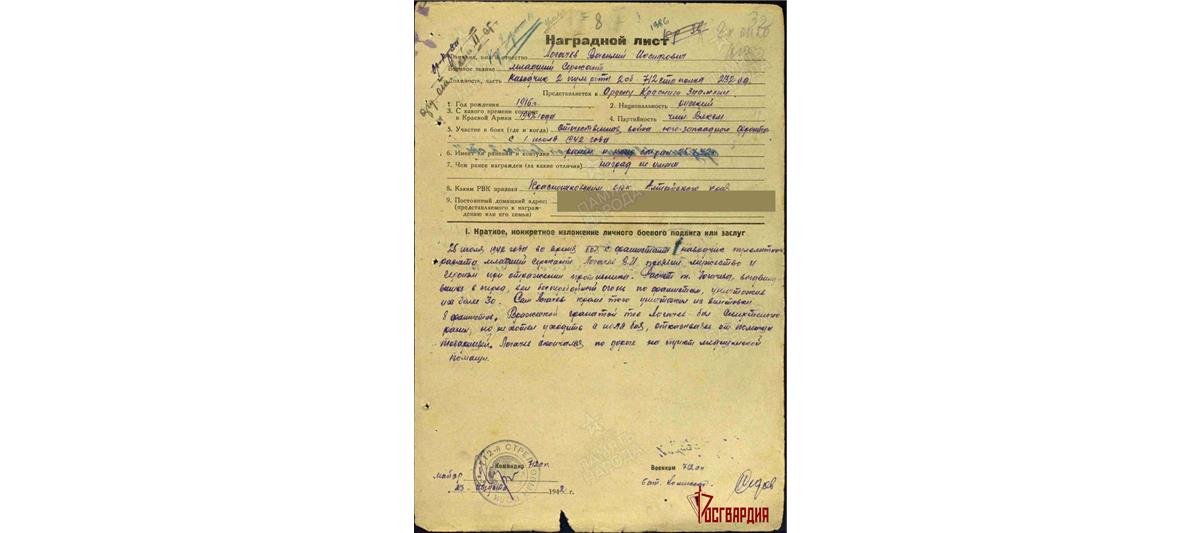 8
1986
Наградной лист
Фамилия, имя и отчество Логачев Василий Иосифович
Военное звание младший Сержант
Должность, часть Наводчик 2 пульроты 2 сб 712 стр полка 232 сд
Представляется к Ордену Красного Знамени
1. Год рождения 1916 г. 2. Национальность русский
3. С какого времени состоит в Красной Армии 1942 года 4. Партийность член ВЛКСМ
5. Участие в боях (где и когда) отечественная война юго-западного фронта
с 1 июля 1942 года
6. Имеет ли ранения и контузии
7. Чем ранее награжден (за какие отличия) наград не имел
8. Каким РВК призван Краснощековским рвк Алтайского края
9. Постоянный домашний адрес:
(представляемого к награж-
дению или его семьи)
I. Краткое, конкретное изложение личного боевого подвига или заслуг
28 июля 1942 года во время боя с фашистами наводчик пулеметного
расчета младший сержант Логачев В.И. проявил мужество и
героизм при отражении противника. Расчет т. Логачева, выдвинув-
шись в перед, вел огонь по фашистам, уничтожив
их более 30. Сам Логачев кроме того уничтожил из винтовки
8 фашистов. Вражеской гранатой тов Логачев был смертельно
ранен, но не хотел уходить с поля боя, отказываясь от помощи
товарищей. Логачев скончался по дороге на пункт медицинской
помощи.
Командир 712 сп
майор
23 августа 1942 г.
Военком 712 сп
бат. комиссар Седов
12-й СТРЕЛКОВЫЙ ПОЛК
ПАМЯТЬ НАРОДА
ПАМЯТЬ НАРОДА
РОСГВАРДИЯ